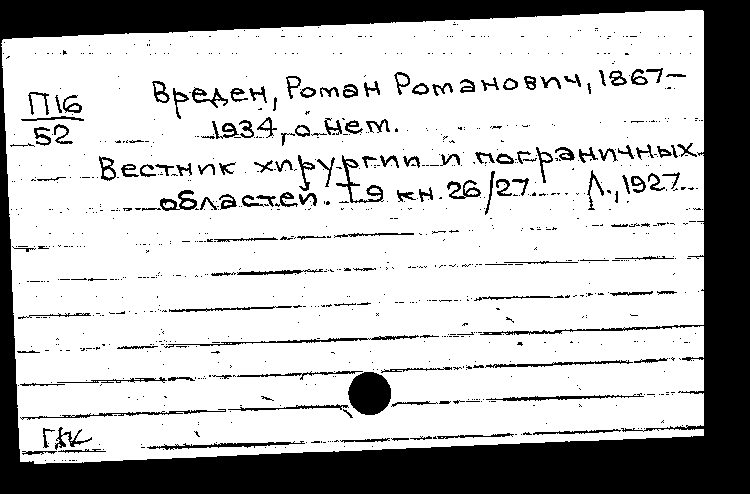 П16
52
Вреден, Роман Романович, 1867-
1934, о нем.
Вестник хирургии и пограничных
областей. Т 9 кн. 26/27 Л., 1927.